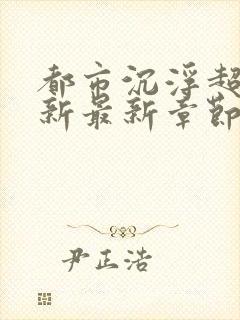 都市沉浮超
新最新章节
尹正浩